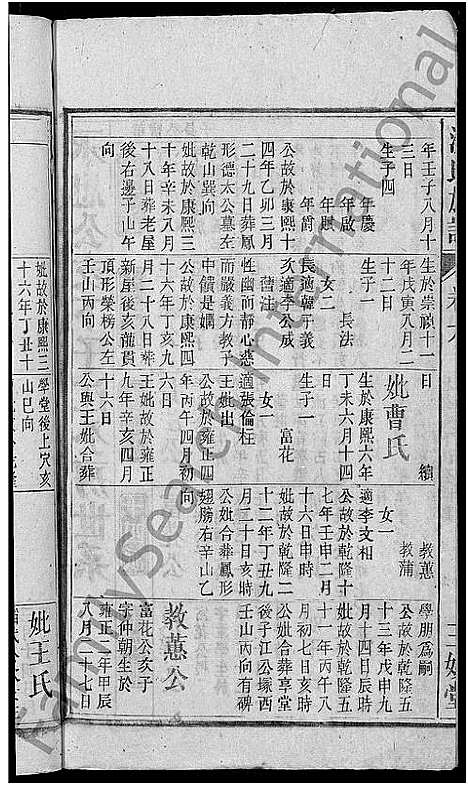 年壬子八月十
三日
生子四
年慶
年啟
年賦
年爵
公故於康熙十
四年乙卯三月
二十九日葬鳳
形德太公墓左
乾山巽向
妣故於康熙三
十年辛未八月
十八日葬老屋
後右邊子山午
向
生於崇禎十一
年戊寅八月二
日
生子一
長法
女二
長適韓子義
次適李公成
舊注
性幽而靜心慈
而嚴義方教子
中饋是嫻
公故於康熙四
十六年丁亥十
月二十八日葬
新屋後亥龍貫
頂形榮楊公左
壬山丙向
續
妣曹氏
生於康熙六年
丁未六月十四
生子一
富花
女一
適張倫枉
王妣出
公故於雍正四
年丙午四月初
六日
王妣故於雍正
九年辛亥四月
十六日
公與王妣合葬
教蕙
教蒲
女一
適李文相
公故於乾隆十
七年壬申二月
十六日申時
妣故於乾隆二
十二年丁丑九
月二十日亥時
公妣合葬鳳形
翅膀右辛山乙
向
學朋為嗣
公故於乾隆五
十三年戊申九
月十四日辰時
妣故於乾隆五
十一年丙午八
月初七日亥時
公妣合葬享堂
江公塚西
壬山丙向有碑
教蕙公
富花公亥子
字仲朝生於
雍正二年甲辰
八月十七日
妣故於康熙三
十六年丁丑十
學堂後上穴亥
山巳向
妣王氏
FamilySearch International